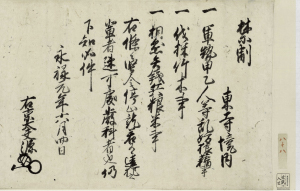 禁制　東寺境内
一　軍勢甲乙人等乱妨狼藉事
一　伐採竹木事
一　相懸矢銭兵粮米事
右条々堅令停止訖若有違犯
輩者速可処厳科者也仍
下知如件
永禄元年六月四日
右京大夫源